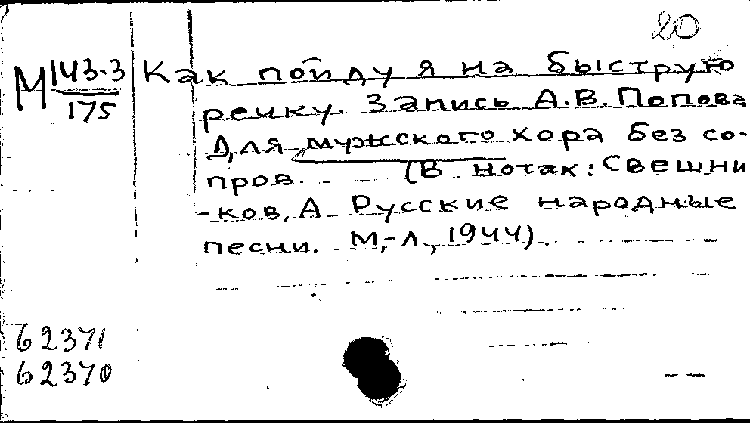 20
М 143-3/175 Как пойду я на быструю
речку. Запись А.В. Попова
Для мужского хора без со-
пров. (В нотах: Свешни
-ков, А Русские народные
песни. М,-Л., 1944).
62371
62370